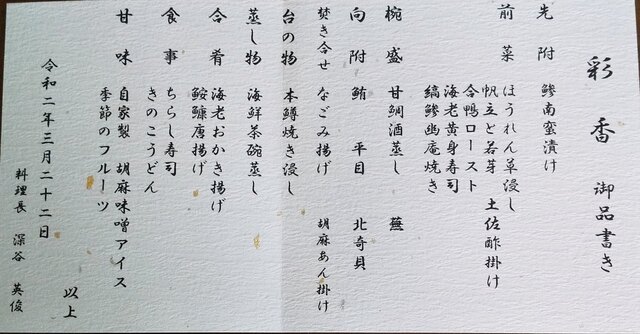 彩香 御品書き
先附 鯵南蛮漬け
前菜 ほうれん草浸し
帆立と若芽 土佐酢掛け
合鴨ロースト
海老黄身寿司
縞鯵幽庵焼き
椀盛 甘鯛酒蒸し 蕪
向附 鮪 平目 北奇貝
焚き合せ なごみ揚げ 胡麻あん掛け
台の物 本鱒焼き浸し
蒸し物 海鮮茶碗蒸し
合肴 海老おかき揚げ
鮟鱇唐揚げ
食事 ちらし寿司
きのこうどん
甘味 自家製 胡麻味噌アイス
季節のフルーツ
以上
令和二年三月二十二日
料理長 深谷 英俊